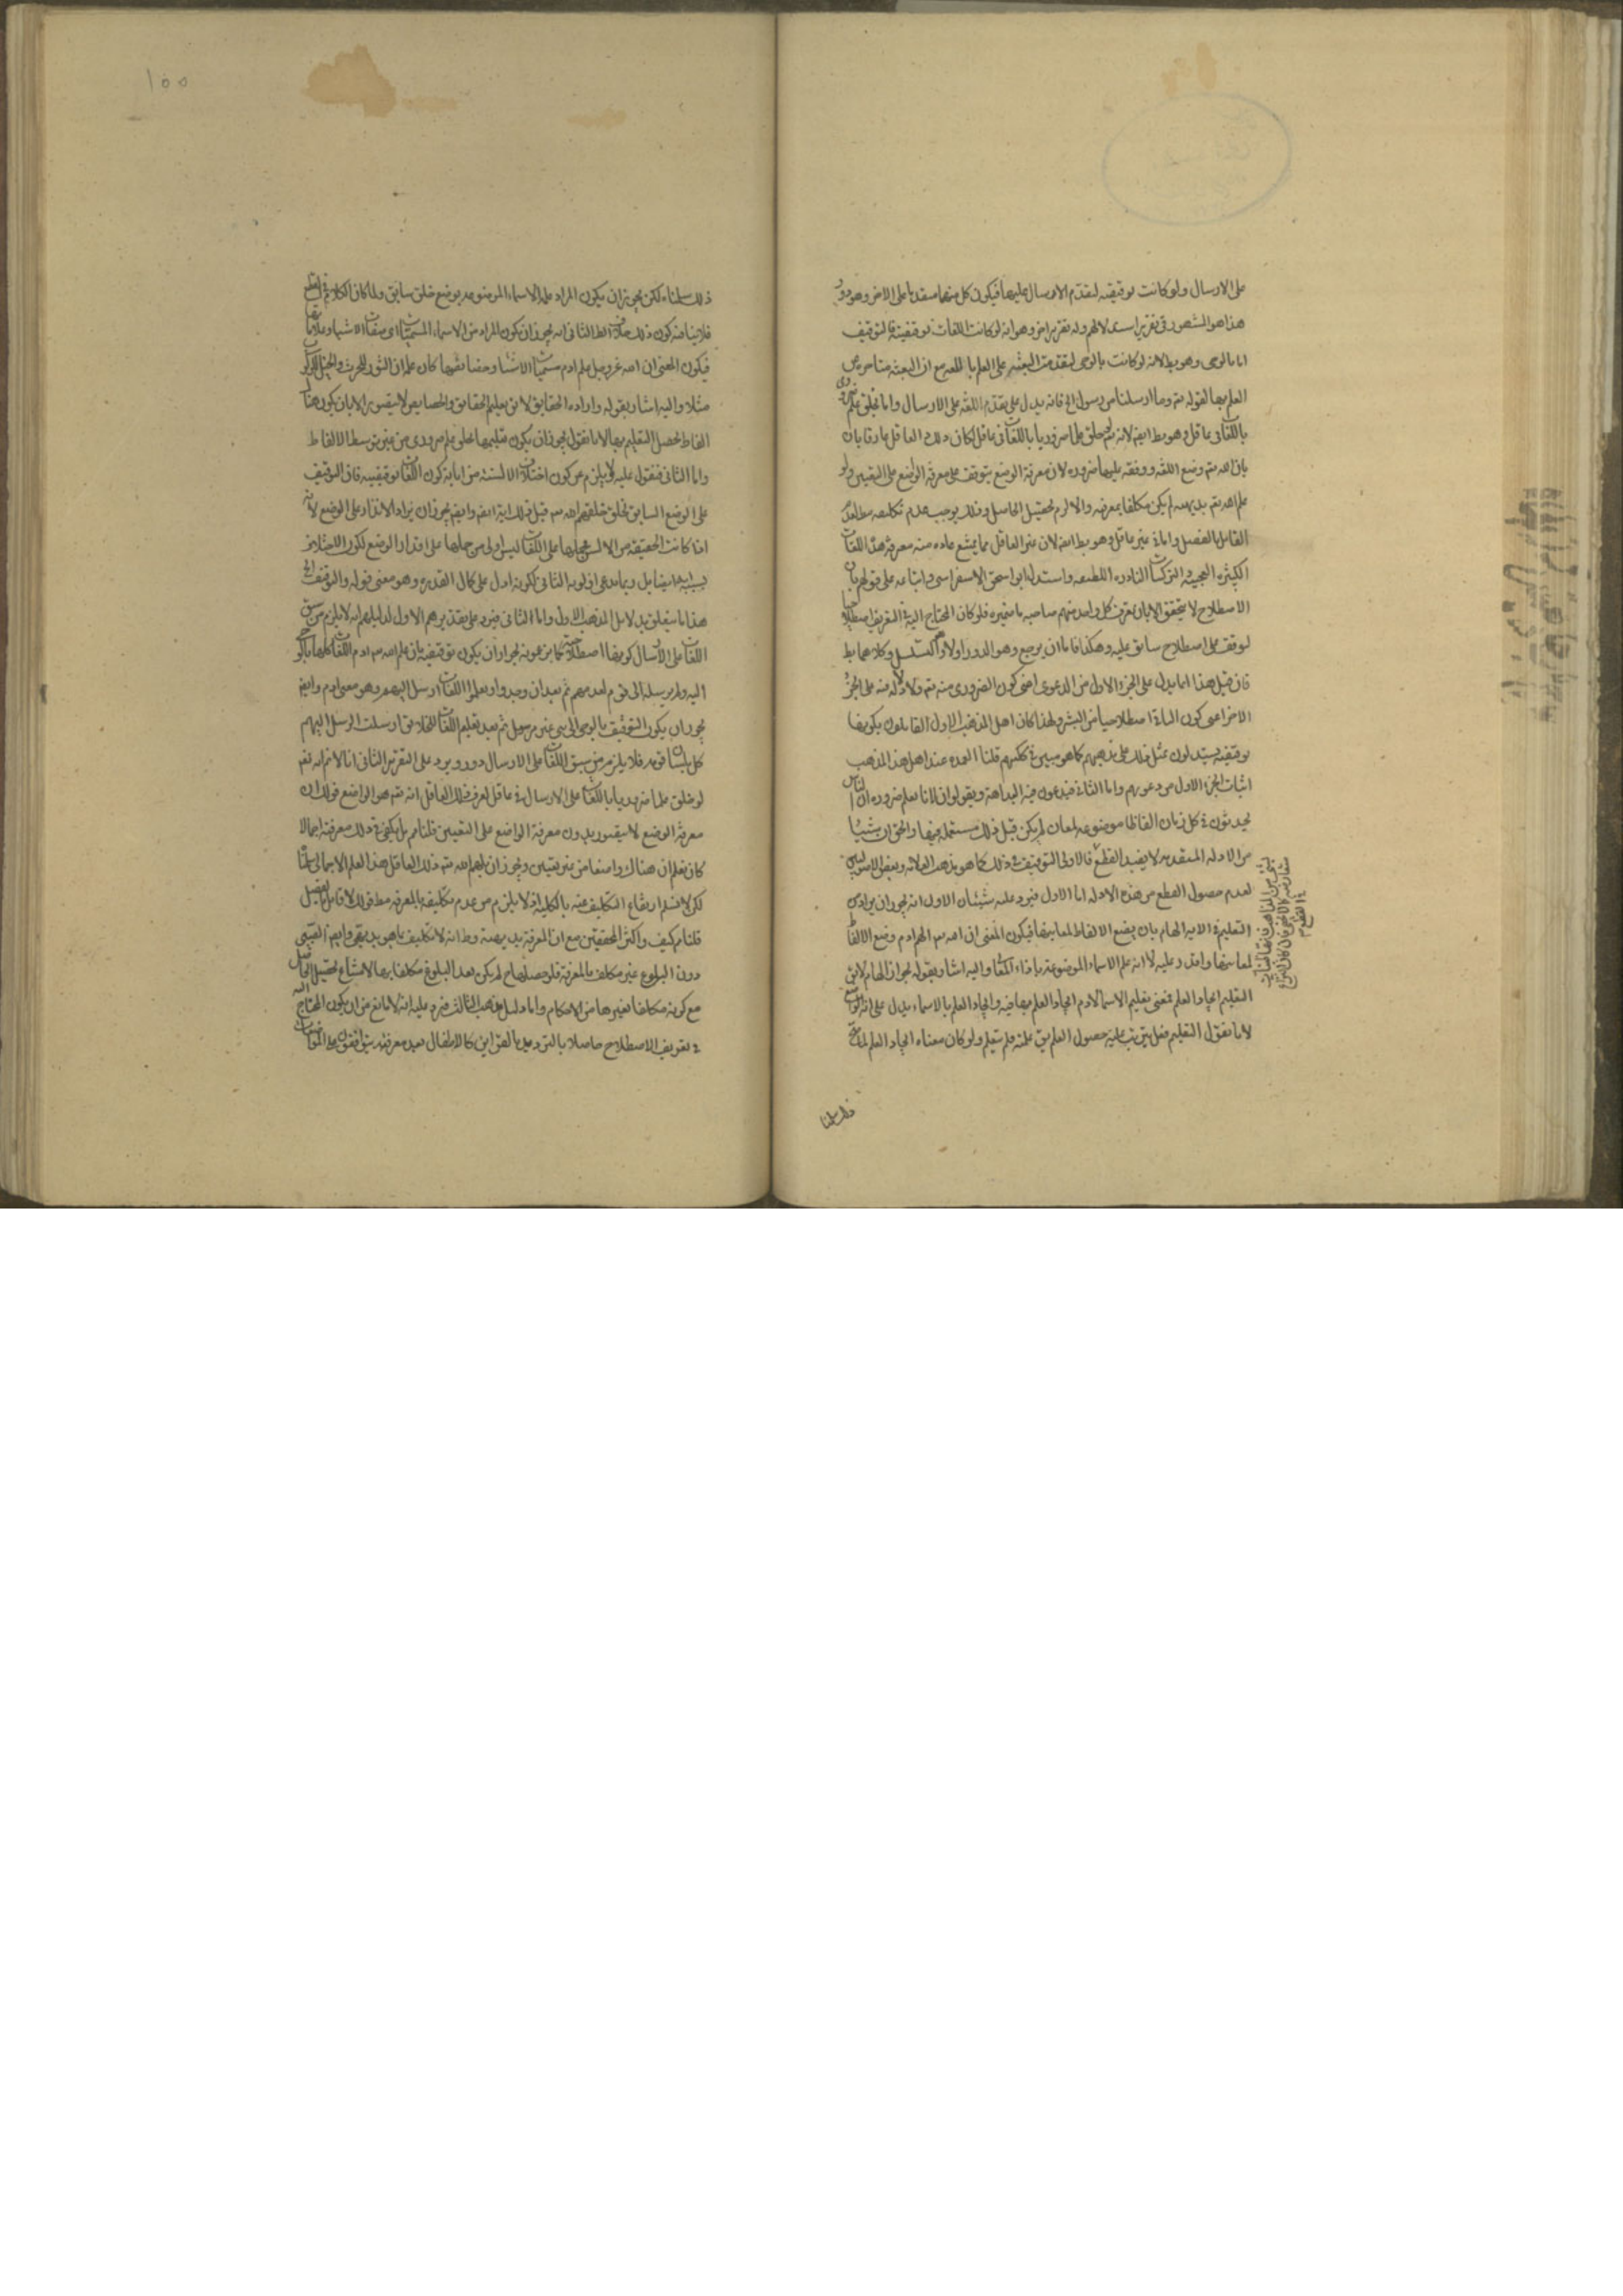 على الارسال ولو كانت توقيفيه لتقدم الارسال عليها فيكون كل منهما مقدما على الاخر وهو دور
هذا هو المشهور في تقرير استدلالهم وله تقرير اخر وهو انه لو كانت اللغات توقيفية فالتوقيف
اما بالوحى وهو بط لانه لو كانت بالوحى لتقدمت البعثه على العلم باللغه مع ان البعثه متاخره عن
العلم بها لقوله تع وما ارسلنا من رسول الخ فانه يدل على تقدم اللغه على الارسال واما بخلق علم ضرورى
باللغات فى عاقل وهو بط ايضا لانه تع لو خلق علما ضروريا باللغات فى عاقل لكان ذلك العاقل عارفا بان
بان الله تع وضع اللغه ووقفه عليها ضروره لان معرفة الوضع يتوقف على معرفة الواضع على التعيين ولو
علم الله تع بديهة لم يكن مكلفا بمعرفته والا لزم تحصيل الحاصل وذلك يوجب عدم تكليفه مط لعدم
القائل بالفصل واما فى غير عاقل وهو بط ايضا لان غير العاقل مما يمتنع عاده منه معرفة هذه اللغات
الكثيره العجيبة والتركيبات النادره اللطيفه واستدل ابو اسحق الاسفراينى واتباعه على قولهم بان
الاصطلاح لا يتحقق الا بان يعرف كل واحد منهم صاحبه ما فى ضميره فلو كان المحتاج اليه فى التعريف اصطلاحيا
لتوقف على اصطلاح سابق عليه وهكذا فاما ان يرجع وهو الدور او لا وهو التسلسل وكلاهما بط
فان قيل هذا انما يدل على الجزء الاول من الدعوى اعنى كون الضرورى منه تع ولا دلالة منه على الجزء
الاخر اعنى كون الباقى اصطلاحيا من البشر ولهذا كان اهل المذهب الاول القايلون بكونها
توقيفيه يستدلون بمثل ذلك على مذهبهم كما هو مبين فى كتبهم قلنا العمده عند اهل هذا المذهب
اثبات الجزء الاول من دعويهم واما الثانى فيدعون فيه البداهة ويقولون انا نعلم ضروره ان الناس
يحدثون فى كل زمان الفاظا موضوعه لمعان لم يكن قبل ذلك مستعمله فيها والحق ان شيئا
من الادله المتقدمه لا يفيد القطع فالاولى التوقف فى ذلك كما هو مذهب العلامه وبعض الاصوليين
لعدم حصول القطع من هذه الادله اما الاول فيرد عليه شيئان الاول انه يجوز ان يراد من
التعليم فى الايه الهام بان يضع الالفاظ لمعانيها فيكون المعنى ان الله تع الهم ادم وضع الالفاظ
لمعانيها واقدر عليه لا انه علم الاسماء الموضوعة بازاء المعانى واليه اشار بقوله لجواز الهام لا يق
التعليم ايجاد العلم فمعنى تعليم الاسماء لادم ايجاد العلم بها فيه وايجاد العلم بالاسماء يدل على انه الواضع
لانا نقول التعليم فعل يترتب عليه حصول العلم يق علمته فلم يتعلم ولو كان معناه ايجاد العلم لما صح
ذلك سلمنا
ذلك سلمناه لكن يجوز ان يكون المراد علمه الاسماء الموضوعه بوضع خلق سابق ولما كان الكلام فى
فلا ينافيه كون ذلك خلاف الظ الثانى انه يجوز ان يكون المراد من الاسماء المسميات اى صفات الاشياء وعلاماتها
فيكون المعنى ان الله عز وجل علم ادم مسميات الاشياء وخصائصها كان علمه ان الثور للحرث والخيل للركوب
مثلا واليه اشار بقوله واراده الحقايق لا يق تعليم الحقايق والخصايص لا يتصور الا بان يكون هناك
الفاظ تحصل التعليم بها لانا نقول يجوز ان يكون تعليمها بخلق علم ضرورى من غير توسط الالفاظ
واما الثانى فنقول عليه لا يلزم من كون اختلاف الالسنه من اياته كون اللغات توقيفيه فان التوقيف
على الوضع السابق بخلق خلقهم الله تع قبل ذلك ايه ايضا وايضا يجوز ان يراد الاقدار على الوضع لانه
اذا كانت الحقيقه من الالسن فحملها على اللغات ليس اولى من حملها على اقدار الوضع لكون الاختلاف
بسببه ايضا بل ربما يدعى اولويه الثانى لكونه ادل على كمال القدره وهو معنى قوله والتوقيف الخ
هذا ما يتعلق بدلايل المذهب الاول واما الثانى فيرد على تقديرهم الاول لدليلهم انه لا يلزم من سبق
اللغات على الارسال كونها اصطلاحيه كما يزعمونه لجواز ان يكون توقيفيه بان علم الله تع ادم اللغات كلها باوحى
اليه ولم يرسله الى قوم لعدمهم ثم بعد ان وجدوا وتعلموا اللغات ارسل اليهم وهو معنى ادم وايضا
يجوز ان يكون التوقيف بالوحى الى نبى غير مرسل ثم بعد تعليم اللغات للخلايق ارسلت الرسل اليهم
كل بلسان قومه فلا يلزم من سبق اللغات على الارسال دور ويرد على التقرير الثانى انا لا نم انه تع
لو خلق علما ضروريا باللغات على الارسال فى عاقل لعرف ذلك العاقل انه تع هو الواضع قولك ان
معرفة الوضع لا يتصور بدون معرفة الواضع على التعيين قلنا مم بل يكفى فى ذلك معرفته اجمالا
كان نعلم ان هناك واضعا من غير تعيين ويجوز ان يلهم الله تع ذلك العاقل هذا العلم الاجمالى سلمنا
لكن لا نسلم ارتفاع التكليف عنه بالكلية اذ لا يلزم من عدم تكليفه بالمعرفه مط قولك لا قائل بالفصل
قلنا مم كيف واكثر المحققين مع ان المعرفة بديهة وظ انه لا تكليف بما هو بديهى وايضا الصبى
دون البلوغ غير مكلف بالمعرفة فلو حصلها ح لم يكن بعد البلوغ مكلفا بها لامتناع تحصيل الحاصل
مع كونه مكلفا بغيرها من الاحكام واما دليل مذهب الثالث فيرد عليه انه لا مانع من ان يكون المحتاج اليه
فى تعريف الاصطلاح حاصلا بالترديد بالقراين كالاطفال
١٥٥